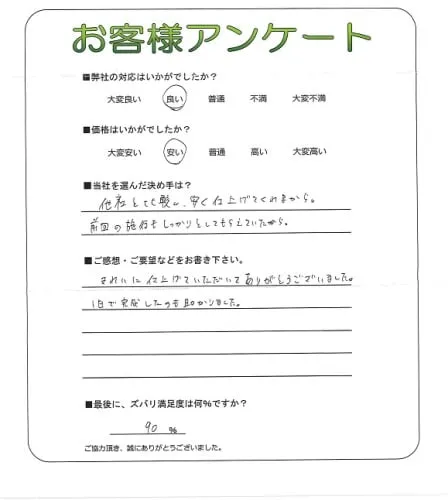 お客様アンケート
■弊社の対応はいかがでしたか?
大変良い 良い 普通 不満 大変不満
■価格はいかがでしたか?
大変安い 安い 普通 高い 大変高い
■当社を選んだ決め手は?
他社とも較べ、安く仕上げてくれるから。
前回の施行もしっかりとしてもらえていたから。
■ご感想・ご要望などをお書き下さい。
きれいに仕上げていただいてありがとうございました。
1日で完成したのも助かりました。
■最後に、ズバリ満足度は何%ですか?
90 %
ご協力頂き、誠にありがとうございました。